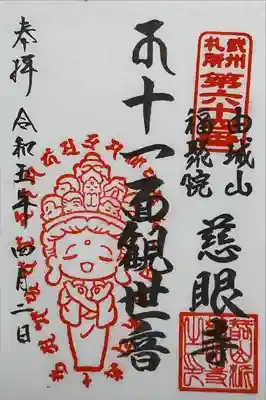 武州
札所
第六十
由城山
福聚院
慈眼寺
十一面観世音
奉拝
令和五年四月二日